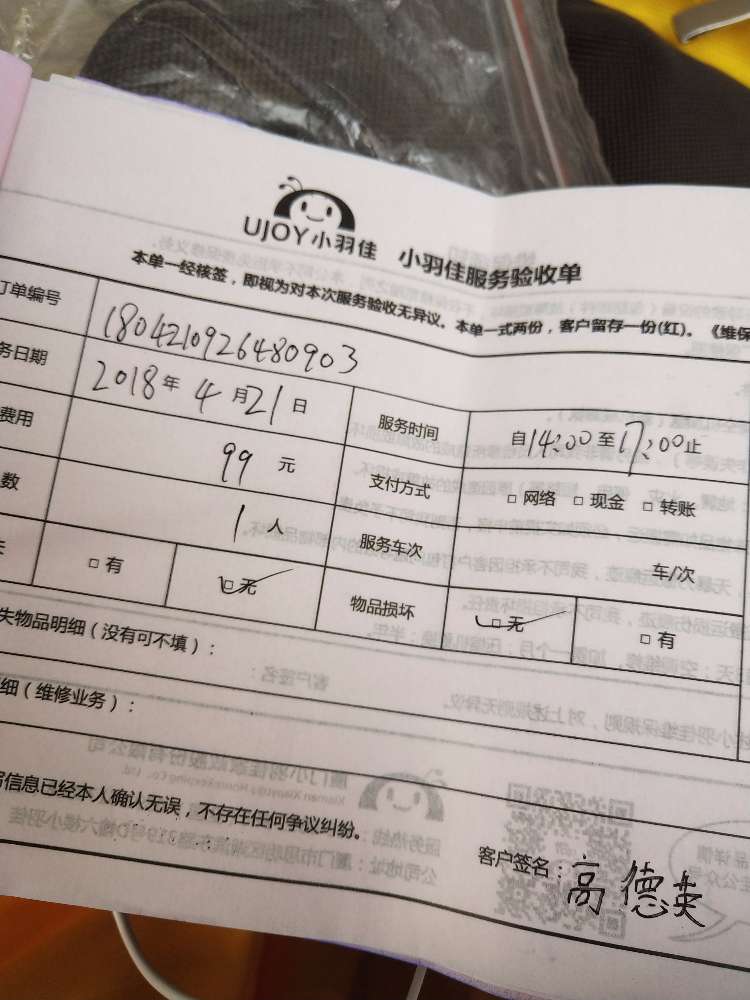 UJOY小羽佳 小羽佳服务验收单
本单一经核签，即视为对本次服务验收无异议。本单一式两份，客户留存一份(红)。《维保
订单编号 1804210926480903
务日期 2018年4月21日 服务时间 自14:00至17:00止
费用 99元 支付方式 □网络 □现金 □转账
数 1人 服务车次 车/次
失 □有 □无 物品损坏 □无 □有
失物品明细（没有可不填）：
细（维修业务）：
写信息已经本人确认无误，不存在任何争议纠纷。
客户签名：高德英